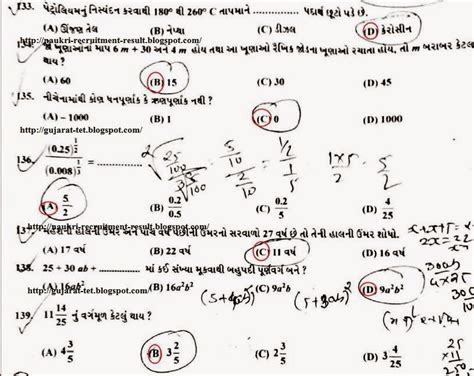 133. પેટ્રોલિયમનું નિસ્યંદન કરવાથી 180° થી 260° C તાપમાને .............. પદાર્થ છૂટો પડે છે.
(A) ઊંજણ તેલ (B) નેપ્થા (C) ડીઝલ (D) કેરોસીન
http://naukri-recruitment-result.blogspot.com/
134. જે ખૂણાઓનાં માપ 6 m + 30 અને 4 m હોય તથા આ ખૂણાઓ રૈખિક જોડના ખૂણાઓ રચાતા હોય, તો m બરાબર કેટલા
થાય ?
(A) 60 (B) 15 (C) 30 (D) 45
135. નીચેનામાંથી કોણ ધનપૂર્ણાંક કે ઋણપૂર્ણાંક નથી ?
(A) – 1000 (B) 1 (C) 0 (D) 1000
http://gujarat-tet.blogspot.com/
136. (0.25)^1/2 / (0.008)^1/3 = ..............
5/10 / 2/10 = 1/2 / 1/5 1×5/2 = 5/2
(A) 5/2 (B) 0.2/0.5 (C) 0.2/5 (D) 4/25
http://naukri-recruitment-result.blogspot.com/
137. મહેશની હાલની ઉંમર અને પાંચ વર્ષ પછીની ઉંમરનો સરવાળો 27 વર્ષ છે તો તેની હાલની ઉંમર શોધો.
x+x+5=
2x = 22
(A) 17 વર્ષ (B) 22 વર્ષ (C) 11 વર્ષ (D) 16 વર્ષ
138. 25 + 30 ab + .............. માં કઈ સંખ્યા મૂકવાથી બહુપદી પૂર્ણવર્ગ બને ?
http://gujarat-tet.blogspot.com/
(A) 16ab² (B) 16a²b² (C) 9a²b (D) 9a²b²
139. 11 14/25 નું વર્ગમૂળ કેટલું થાય ?
(A) 4 3/5 (B) 3 2/5 (C) 2 3/5 (D) 3 4/25